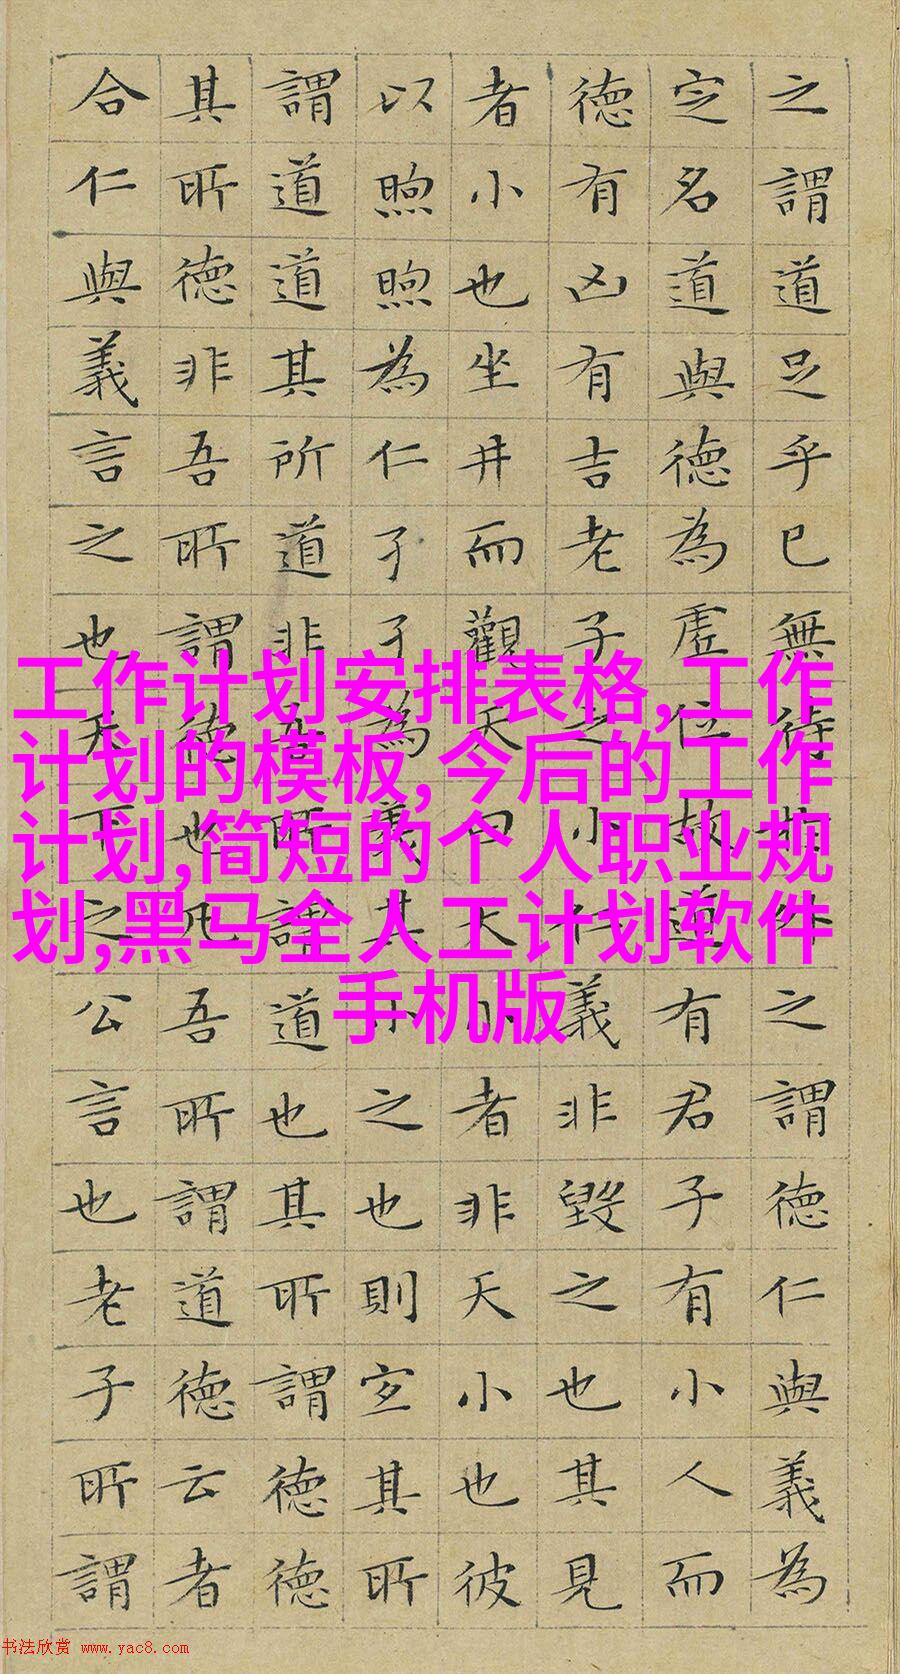 之謂道足乎已無待於外之謂德仁與義為
定名道與德為虛位故道有君子有小人而
德有凶有吉老子之小仁義非毀之也其見
者小也坐井而觀天曰天小者非天小也彼
以煦煦為仁孑孑為義其小之也則宜其所
謂道道其所道非吾所謂道也其所謂德德
其所德非吾所謂德也凡吾所謂道德云者
合仁與義言之也天下之公言也老子所謂
工作计划安排表格,工作
计划的模板,今后的工作
计划,简短的个人职业规
划,黑马全人工计划软件
手机版
书法欣赏 www.yac8.com